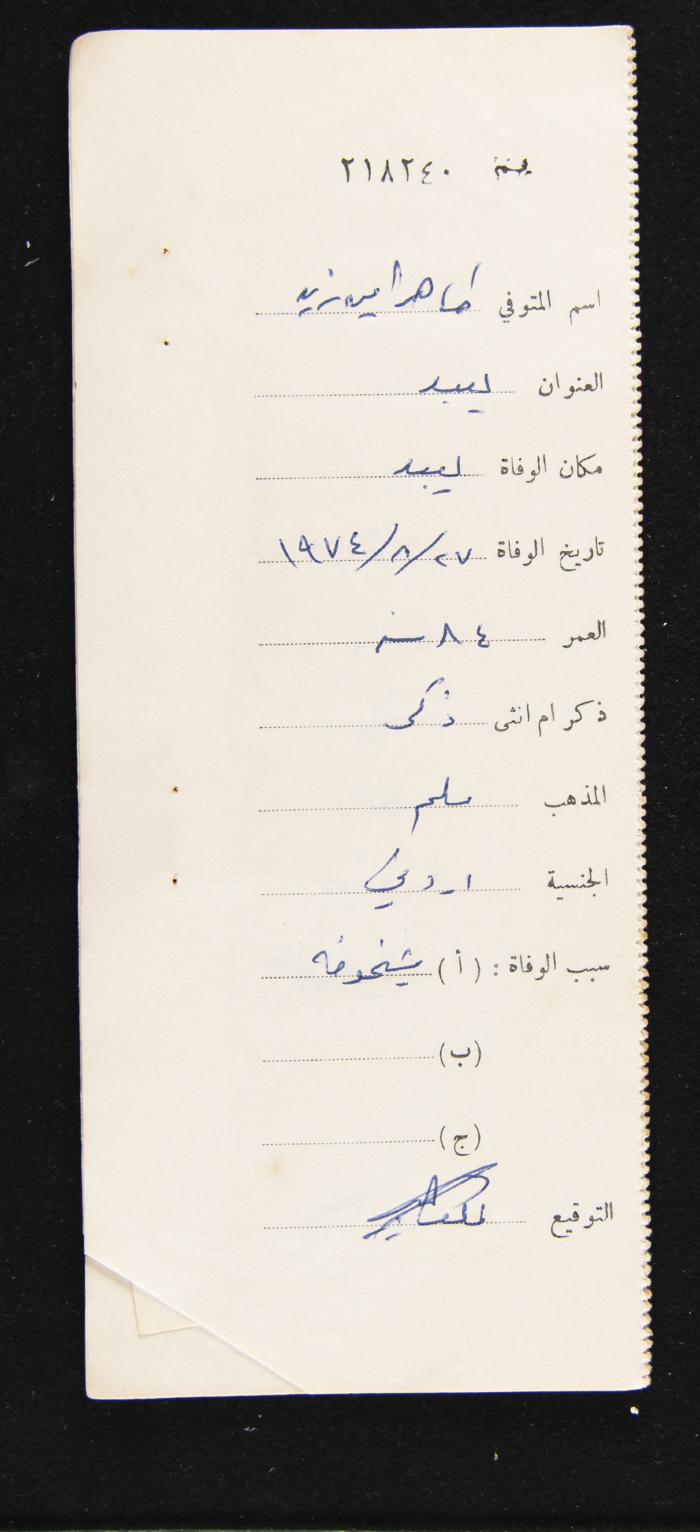 نمرة ٢١٨٢٤٠
اسم المتوفي طاهر امين زيد
العنوان يعبد
مكان الوفاة يعبد
تاريخ الوفاة ٢٧/٨/١٩٧٤
العمر ٨٤ سنه
ذكر ام انثى ذكر
المذهب مسلم
الجنسية اردني
سبب الوفاة : ( أ ) شيخوخه
(ب)
(ج)
التوقيع